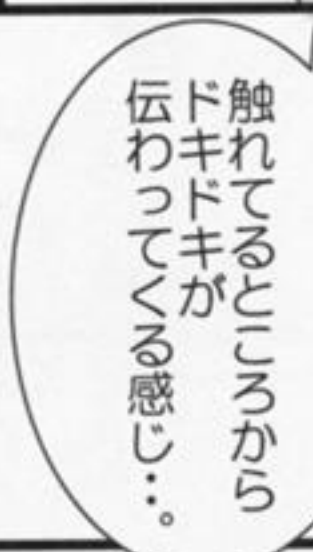 触れてるところから
ドキドキが
伝わってくる感じ…。